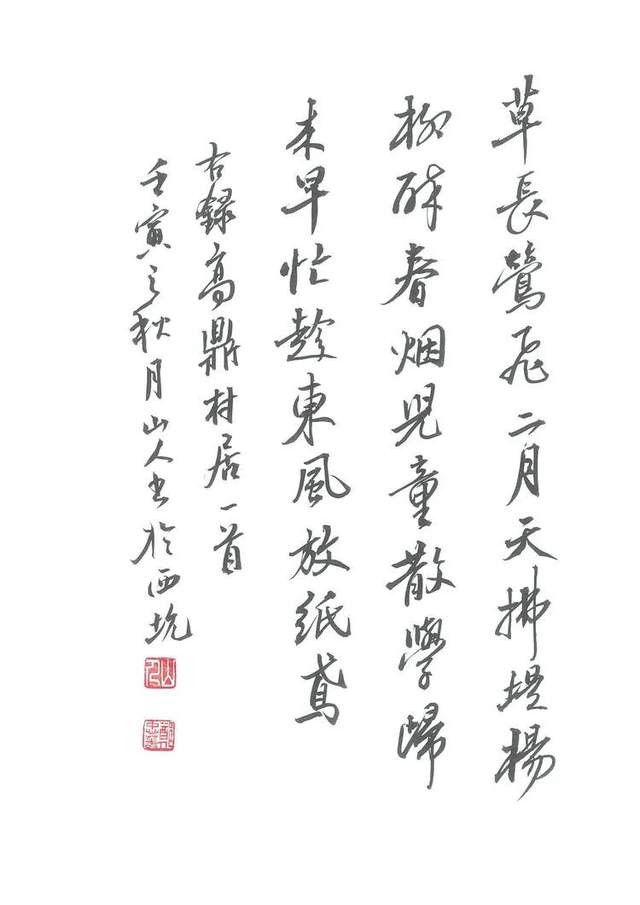 草長鶯飛二月天拂堤楊
柳醉春烟兒童散學歸
来早忙趁東風放紙鳶
右錄高鼎村居一首
壬寅之秋月山人书於西坑